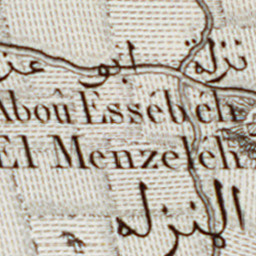 نزلة ابو عنـ
Aboû Essébéh
El Menzeléh
المنزله